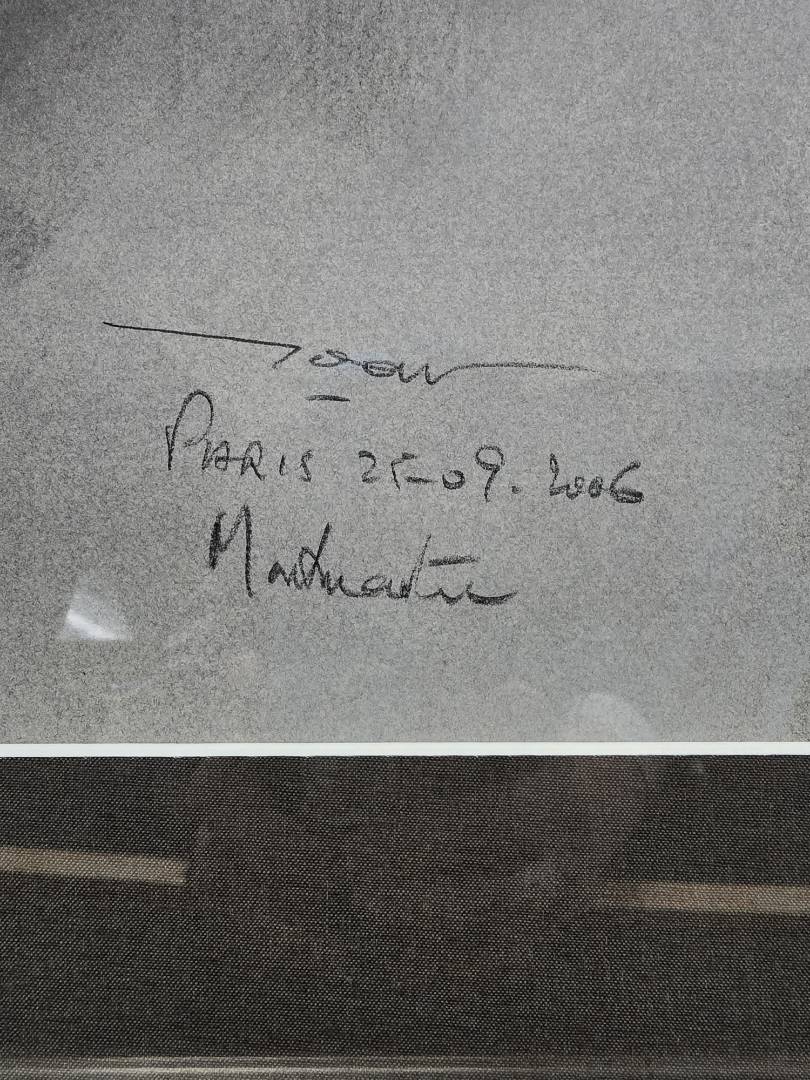 PARIS 25-09.2006
Montmartre